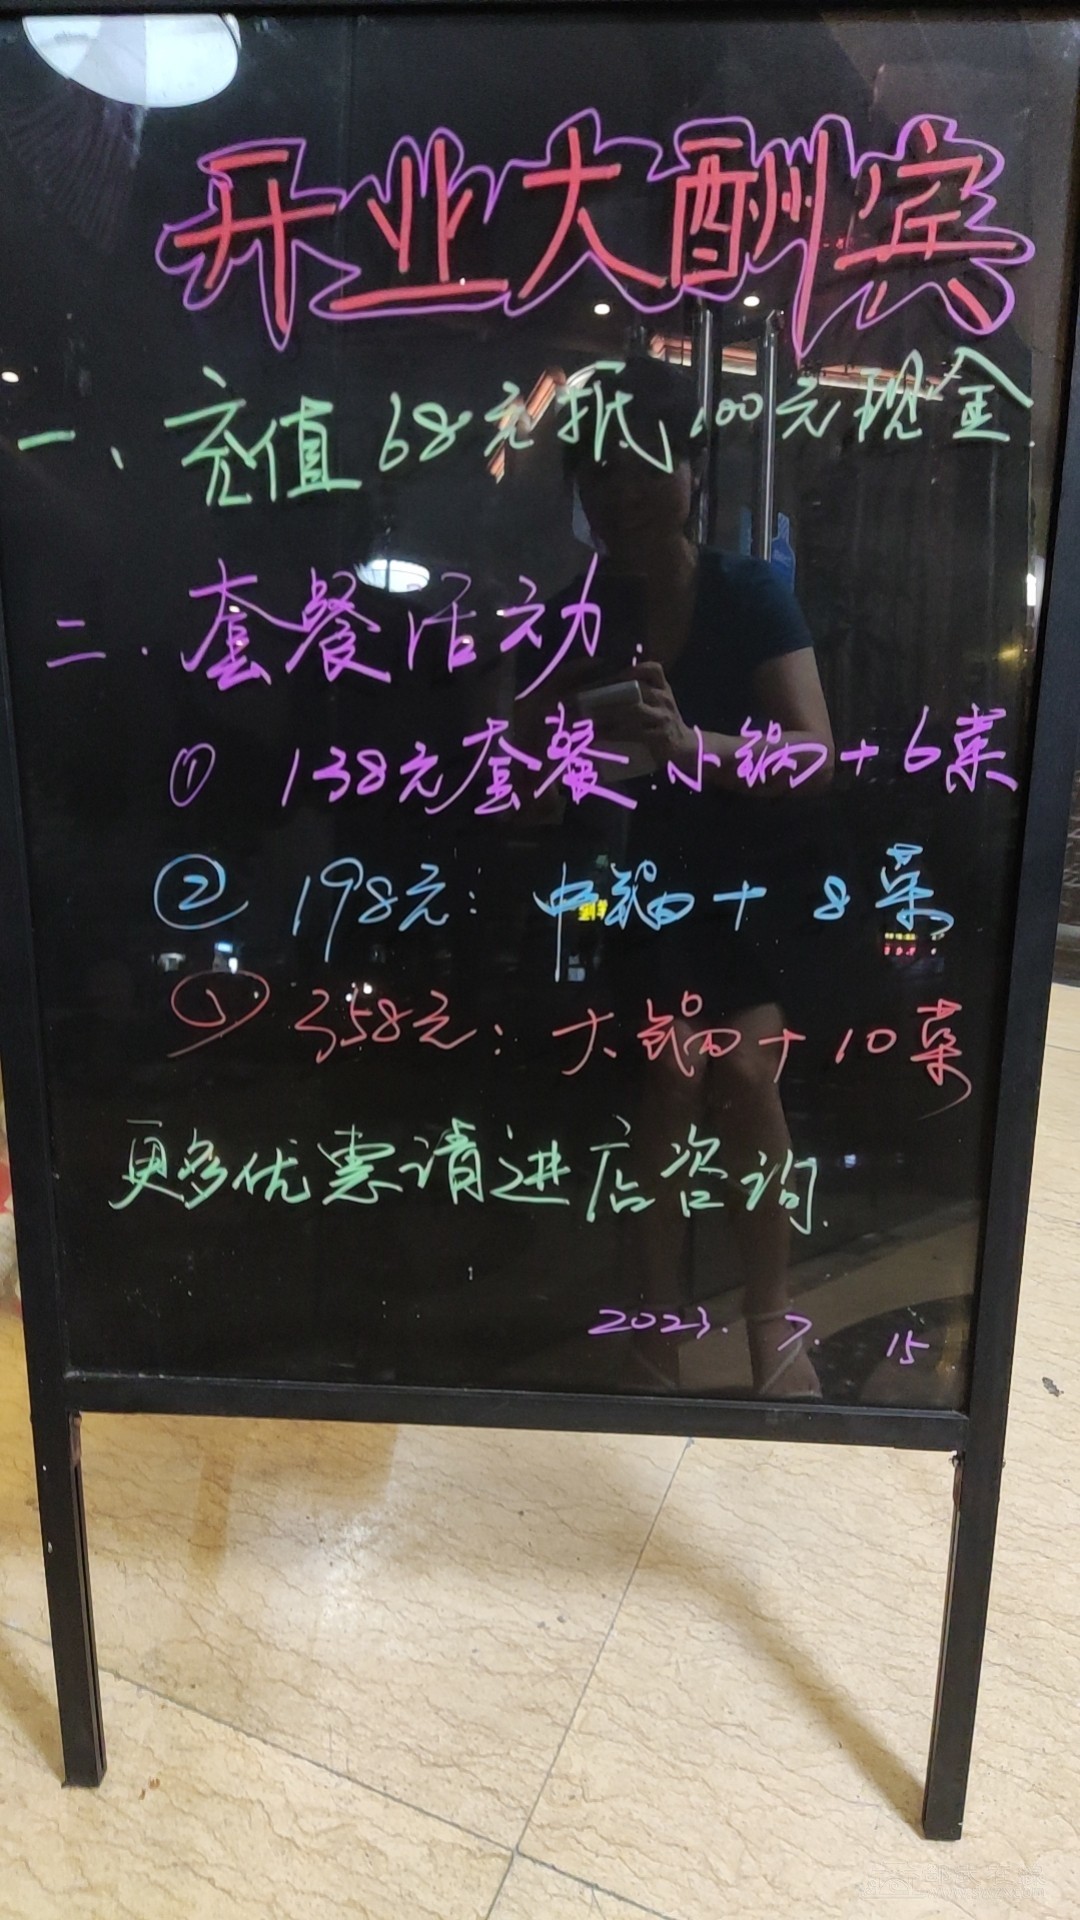 开业大酬宾
一、充值68元抵100元现金.
二.套餐活动:
① 138元套餐:小锅+6菜
② 198元: 中锅+ 8菜
③ 358元: 大锅+10菜
更多优惠请进店咨询.
2023. 7. 15